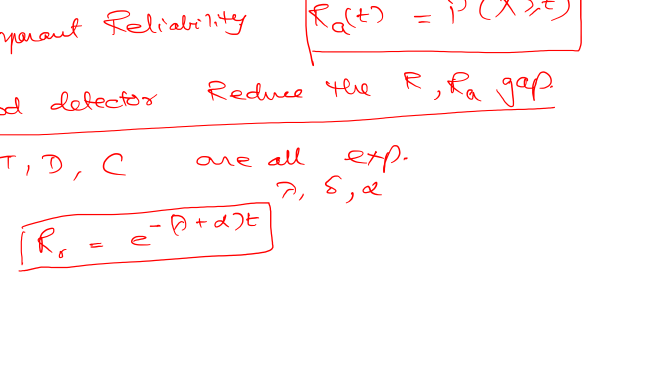 Reliability
Ra(t) = P(X ≥ t)
detector Reduce the R, Ra gap.
T, D, C are all exp.
λ, δ, α
Rr = e^-(λ+α)t